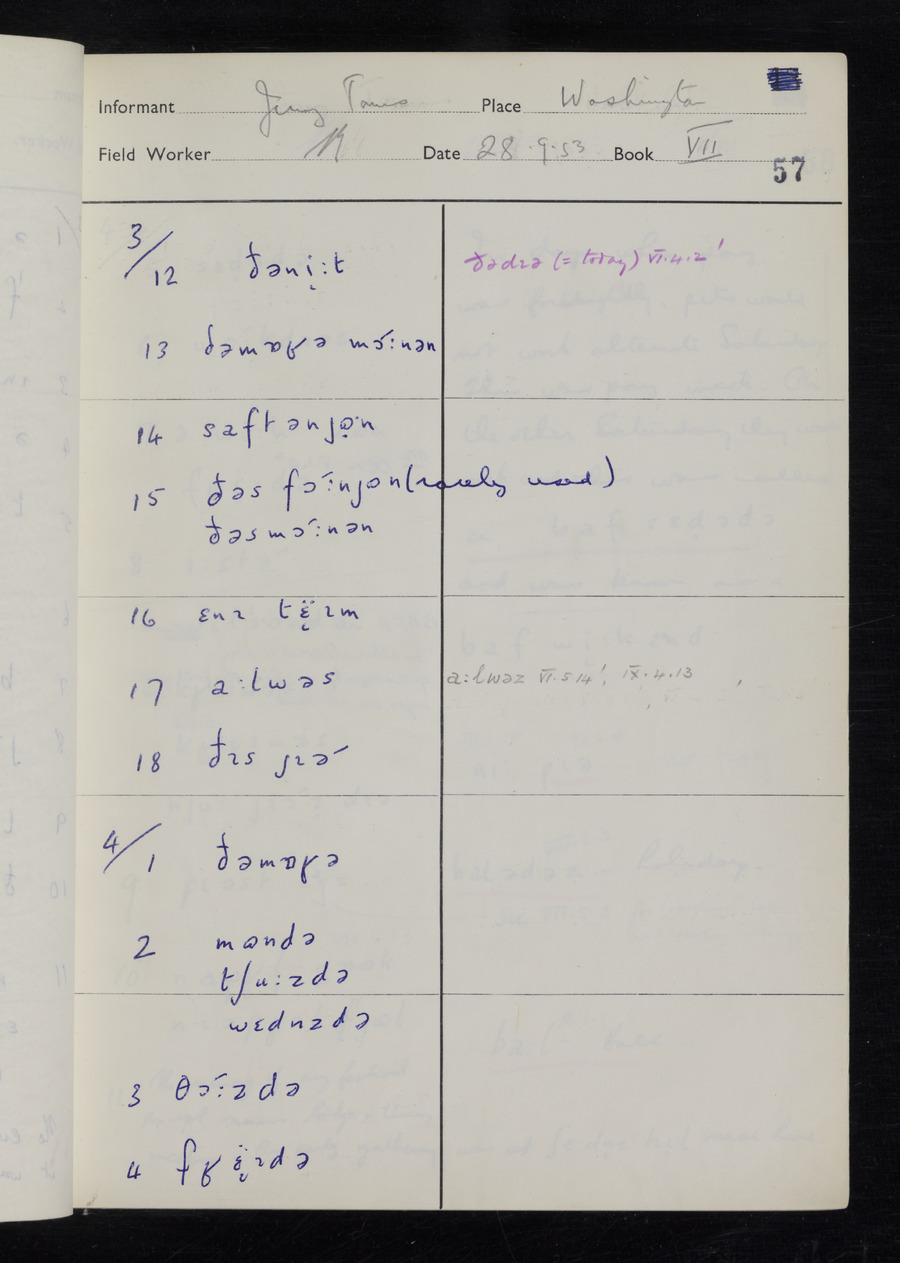 Informant Place Washington
Field Worker Date 28.9.53 Book VII
57
3/12 ðəni̜:t ðədɪə (= today) VI.4.2'
13 ðəmɒʁə mɔ́:nən
14 saftənjɵ̣n
15 ðəs fɔ́:njən (rarely used)
ðəsmɔ́:nən
16 ɛnɪ tɛ̜̈ɪm
17 a:lwəs a:lwəz VI.5.14', IX.4.13
18 ðɪs jɪə́
4/1 ðəmɒʁə
2 mɵndə
tʃu:zdə
wɛdnzdə
3 θɔ́:zdə
4 fʁɛ̜̈ɪdə